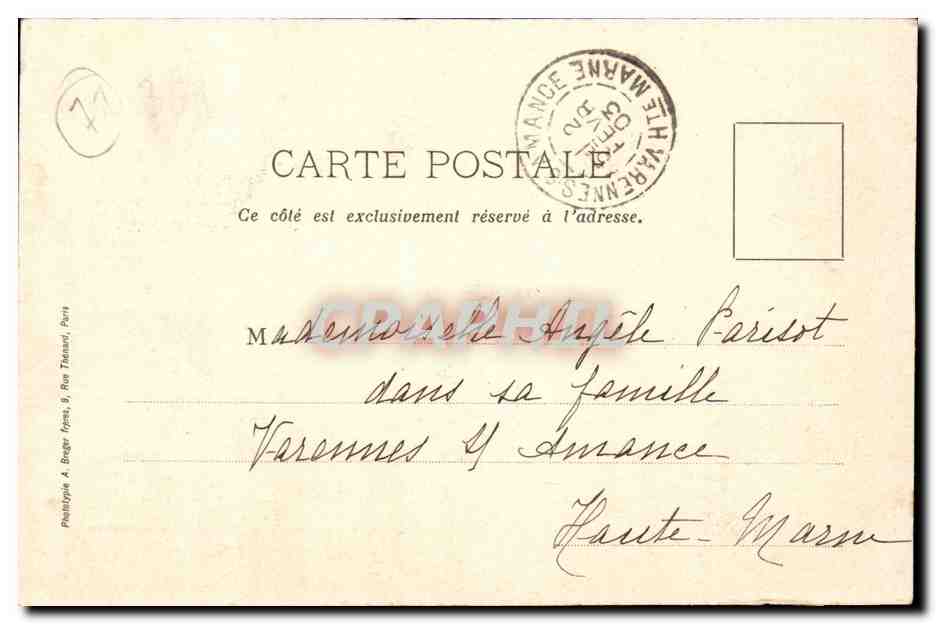 71
VARENNES S AMANCE
HTE MARNE
2
FEVR
03
CARTE POSTALE
Ce côté est exclusivement réservé à l'adresse.
Mademoiselle Angèle Parisot
dans sa famille
Varennes s/ Amance
Haute-Marne
Phototypie A. Breger frères, 9, Rue Thénard, Paris